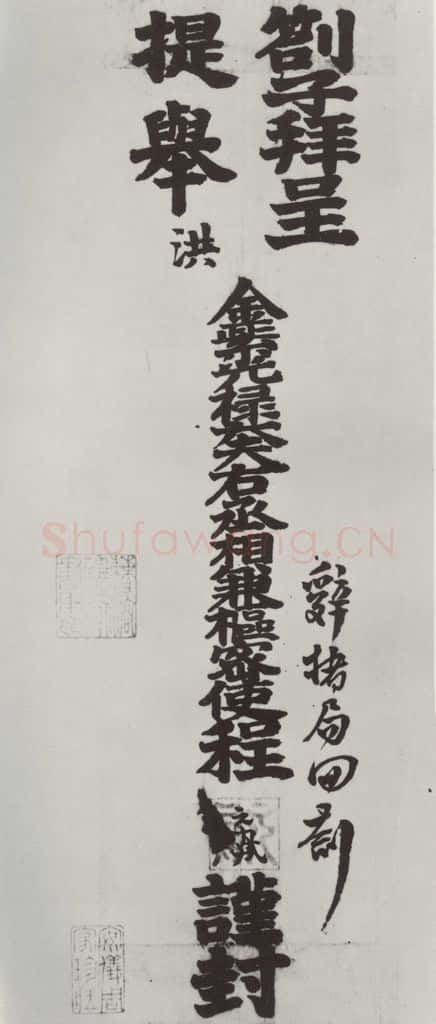 劄子拜呈
提舉 洪
金紫光祿大夫右丞相兼樞密使程 元鳳 謹封
辭楮局回劄
Shufawang.CN